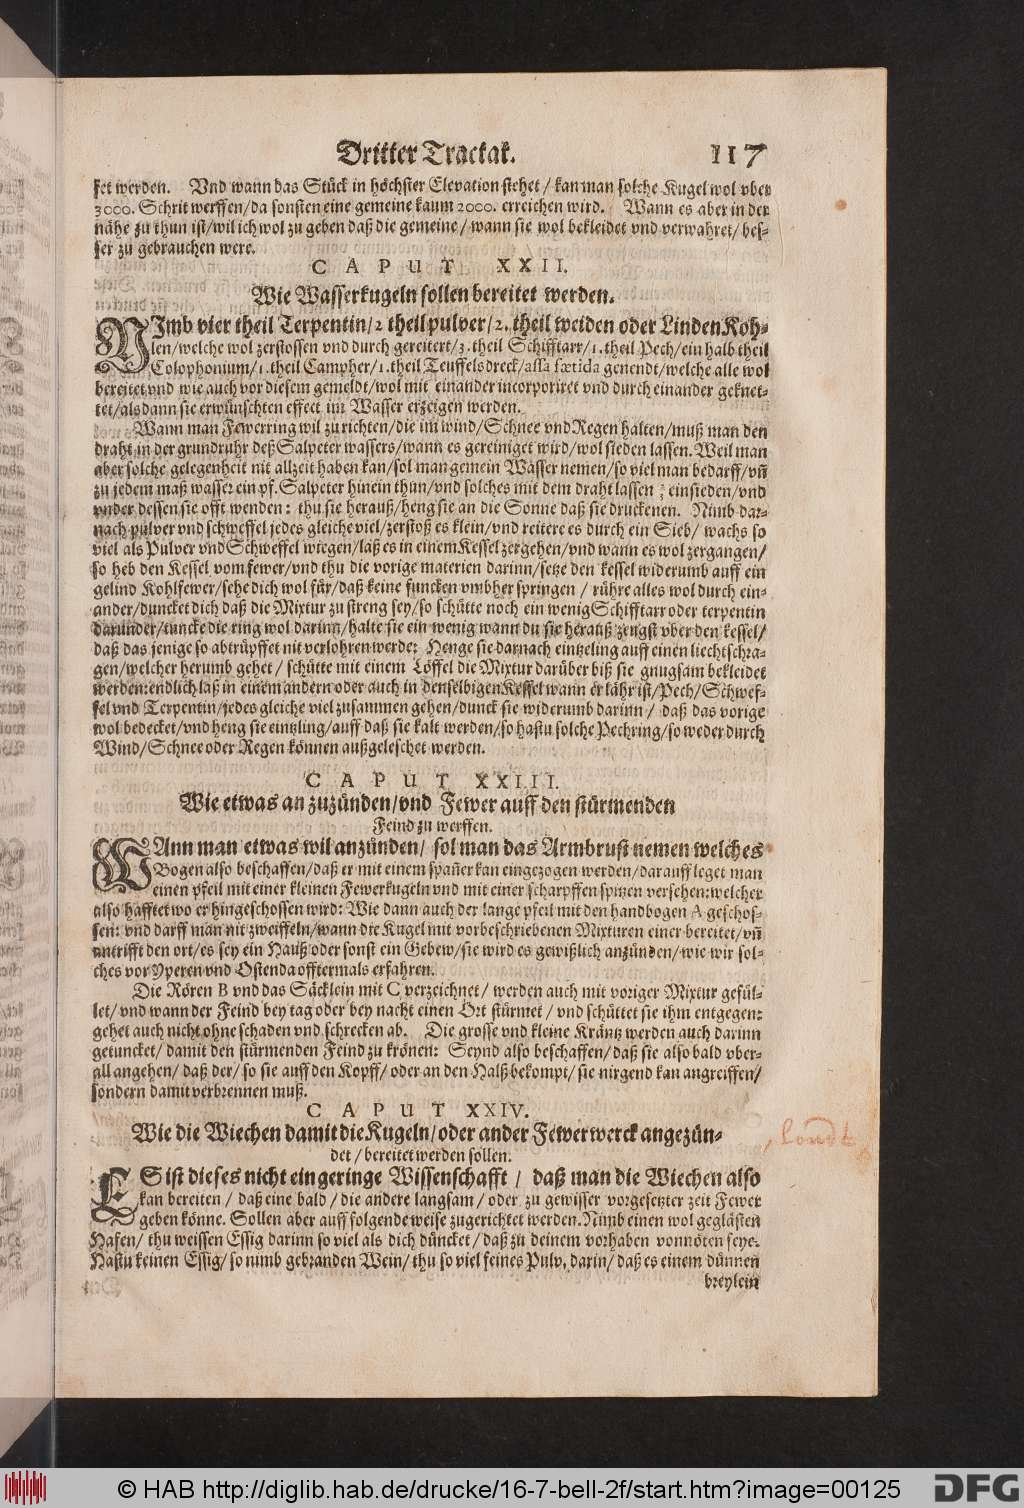 Dritter Tractat. 117
set werden. Vnd wann das Stück in höchster Elevation stehet / kan man solche Kugel wol vber
3000. Schrit werffen/da sonsten eine gemeine kaum 2000. erreichen wird. Wann es aber in der
nähe zu thun ist/wil ich wol zu geben daß die gemeine/wann sie wol bekleidet vnd verwahret/bes-
ser zu gebrauchen were.
CAPUT XXII.
Wie Wasserkugeln sollen bereitet werden.
NImb vier theil Terpentin/2 theil pulver/2. theil weiden oder Linden Koh-
len/welche wol zerstossen vnd durch gereitert/3. theil Schifftarr/1. theil Pech/ein halb theil
Colophonium/1. theil Campher/1. theil Teuffelsdreck/assa fœtida genendt/welche alle wol
bereitet vnd wie auch vor diesem gemeldt/wol mit einander incorporiret vnd durch einander geknet-
tet/als dann sie erwünschten effect im Wasser erzeigen werden.
Wann man Fewerring wil zu richten/die im wind/Schnee vnd Regen halten/muß man den
draht in der grundruhr deß Salpeter wassers/wann es gereiniget wird/wol sieden lassen. Weil man
aber solche gelegenheit nit allzeit haben kan/sol man gemein Wasser nemen/so viel man bedarff/vñ
zu jedem maß wasser ein pf. Salpeter hinein thun/vnd solches mit dem draht lassen ⅔ einsieden/vnd
vnder dessen sie offt wenden: thu sie herauß/heng sie an die Sonne daß sie druckenen. Nimb dar-
nach pulver vnd schweffel jedes gleiche viel/zerstoß es klein/vnd reitere es durch ein Sieb/ wachs so
viel als Pulver vnd Schweffel wiegen/laß es in einem Kessel zergehen/vnd wann es wol zergangen/
so heb den Kessel vom fewer/vnd thu die vorige materien darinn/setze den kessel widerumb auff ein
gelind Kohlfewer/sehe dich wol für/daß keine funcken vmbher springen / rühre alles wol durch ein-
ander/duncket dich daß die Mixtur zu streng sey/so schütte noch ein wenig Schifftarr oder terpentin
darunder/tuncke die ring wol darinn/halte sie ein wenig wann du sie herauß zeugst vber den kessel/
daß das jenige so abtrüpffet nit verlohren werde: Henge sie darnach eintzeling auff einen liechtschra-
gen/welcher herumb gehet / schütte mit einem Löffel die Mixtur darüber biß sie gnugsam bekleidet
werden: endlich laß in einem andern oder auch in denselbigen Kessel wann er lähr ist/Pech/Schwef-
fel vnd Terpentin/jedes gleiche viel zusammen gehen/dunck sie widerumb darinn / daß das vorige
wol bedecket/vnd heng sie eintzling/auff daß sie kalt werden/so hastu solche Pechring/so weder durch
Wind/Schnee oder Regen können außgeleschet werden.
CAPUT XXIII.
Wie etwas an zuzünden/vnd Fewer auff den stürmenden
Feind zu werffen.
WAnn man etwas wil anzünden/ sol man das Armbrust nemen welches
Bogen also beschaffen/daß er mit einem spañer kan eingezogen werden/darauff leget man
einen pfeil mit einer kleinen Fewerkugeln vnd mit einer scharpffen spitzen versehen: welcher
also hafftet wo er hingeschossen wird: Wie dann auch der lange pfeil mit den handbogen A geschos-
sen: vnd darff man nit zweiffeln/wann die Kugel mit vorbeschriebenen Mixturen einer bereitet/vñ
antrifft den ort/es sey ein Hauß oder sonst ein Gebew/sie wird es gewißlich anzünden/wie wir sol-
ches vor Yperen vnd Ostenda offtermals erfahren.
Die Rören B vnd das Säcklein mit C verzeichnet/ werden auch mit voriger Mixtur gefül-
let/ vnd wann der Feind bey tag oder bey nacht einen Ort stürmet / vnd schüttet sie ihm entgegen:
gehet auch nicht ohne schaden vnd schrecken ab. Die grosse vnd kleine Kräntz werden auch darinn
getuncket/ damit den stürmenden Feind zu krönen: Seynd also beschaffen/daß sie also bald vber-
all angehen/ daß der/ so sie auff den Kopff/ oder an den Halß bekompt/ sie nirgend kan angreiffen/
sondern damit verbrennen muß.
CAPUT XXIV.
Wie die Wiechen damit die Kugeln/oder ander Fewerwerck angezün-
det / bereitet werden sollen.
londt
ES ist dieses nicht ein geringe Wissenschafft / daß man die Wiechen also
kan bereiten / daß eine bald / die andere langsam / oder zu gewisser vorgesetzter zeit Fewer
geben könne. Sollen aber auff folgende weise zugerichtet werden. Nimb einen wol geglästen
Hafen/ thu weissen Essig darinn so viel als dich düncket/ daß zu deinem vorhaben vonnöten seye.
Hastu keinen Essig/ so nimb gebranden Wein/ thu so viel feines Pulv. darin/ daß es einem dünnen
breylein
© HAB http://diglib.hab.de/drucke/16-7-bell-2f/start.htm?image=00125
DFG